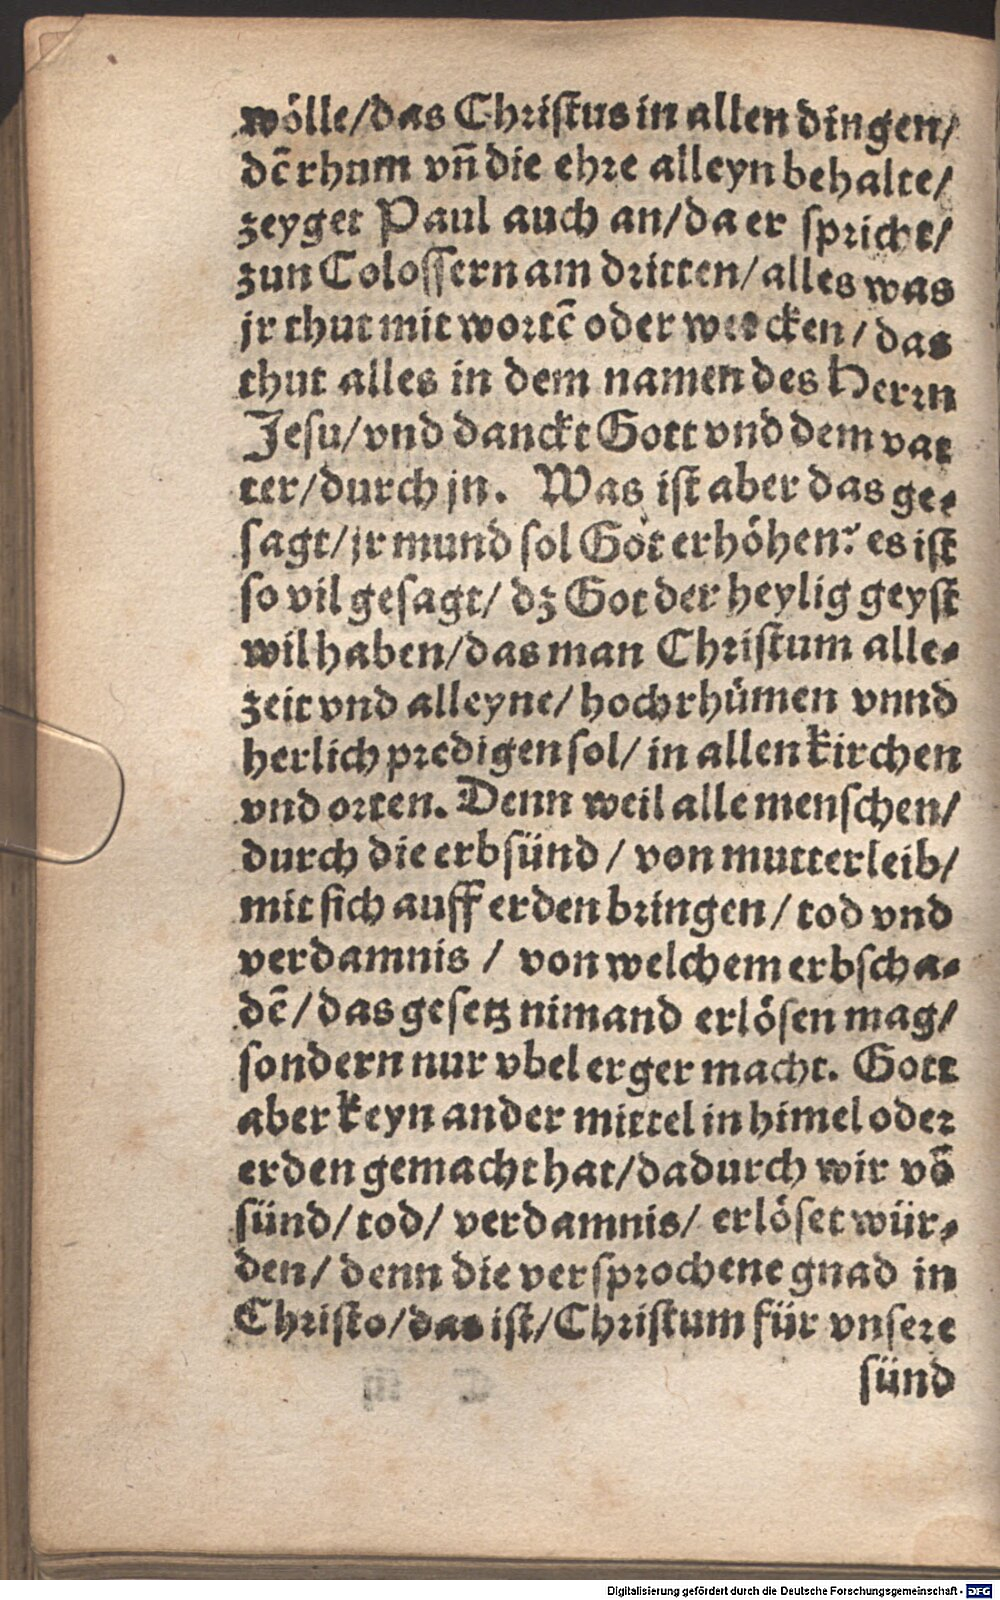 wölle/das Christus in allen dingen/
dẽ rhum vñ die ehre alleyn behalte/
zeyget Paul auch an/da er spricht/
zun Colossern am dritten/alles was
jr thut mit wortẽ oder wercken/das
thut alles in dem namen des Herrn
Jesu/vnd danckt Gott vnd dem vat
ter/durch jn. Was ist aber das ge-
sagt/jr mund sol Got erhöhen? es ist
so vil gesagt/dz Got der heylig geyst
wil haben/das man Christum alle-
zeit vnd alleyne/hoch rhümen vnnd
herlich predigen sol/in allen kirchen
vnd orten. Denn weil alle menschen/
durch die erbsünd/von mutterleib/
mit sich auff erden bringen/tod vnd
verdamnis/von welchem erbscha-
dẽ/das gesetz nimand erlösen mag/
sondern nur vbel erger macht. Gott
aber keyn ander mittel in himel oder
erden gemacht hat/dadurch wir võ
sünd/tod/verdamnis/erlöset wür-
den/denn die versprochene gnad in
Christo/das ist/Christum für vnsere
sünd
Digitalisierung gefördert durch die Deutsche Forschungsgemeinschaft - DFG